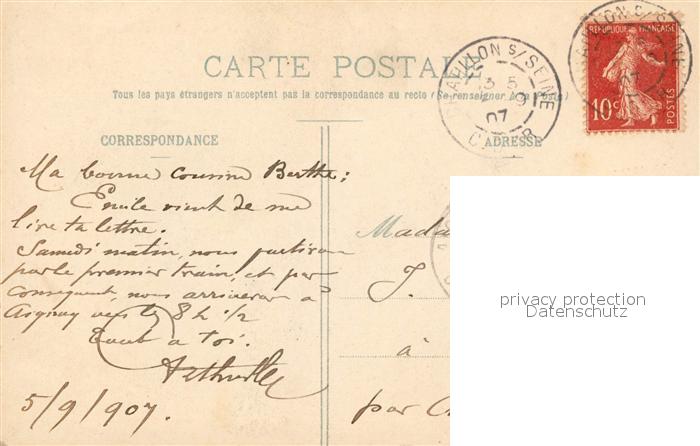 CARTE POSTALE
Tous les pays étrangers n'acceptent pas la correspondance au recto (Se renseigner à la Poste)
CHATILLON S/SEINE
3 5
5 9
07
COTE D'OR
REPUBLIQUE FRANÇAISE
10c
POSTES
CORRESPONDANCE
ADRESSE
Ma bonne cousine Berthe;
Emile vient de me
lire ta lettre.
Samedi matin, nous partirons
par le premier train, et par
conséquent, nous arriverons à
Aignay vers les 8 h 1/2
Tout à toi.
5/9/907.
Mada
J.
à
par Ch
privacy protection
Datenschutz